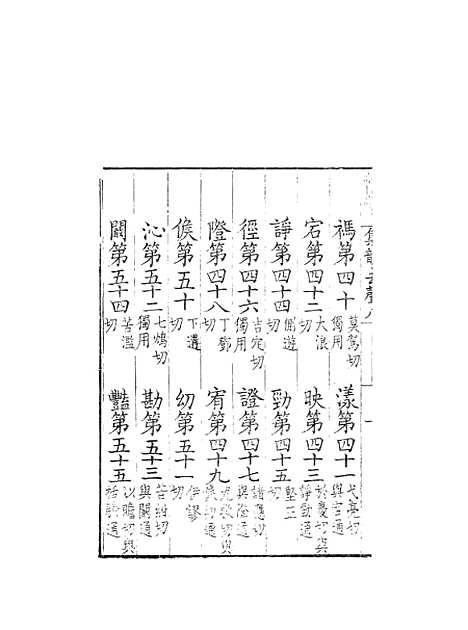 集韻去聲八
禡第四十莫駕切獨用
漾第四十一弋亮切與宕通
宕第四十二大浪切
映第四十三於慶切與諍勁通
諍第四十四側迸切
勁第四十五堅正切
徑第四十六吉定切獨用
證第四十七諸應切與隥通
隥第四十八丁鄧切
宥第四十九尤救切與候幼通
候第五十下遘切
幼第五十一伊謬切
沁第五十二七鴆切獨用
勘第五十三苦紺切與闞通
闞第五十四苦濫切
豔第五十五以贍切與㮇驗通